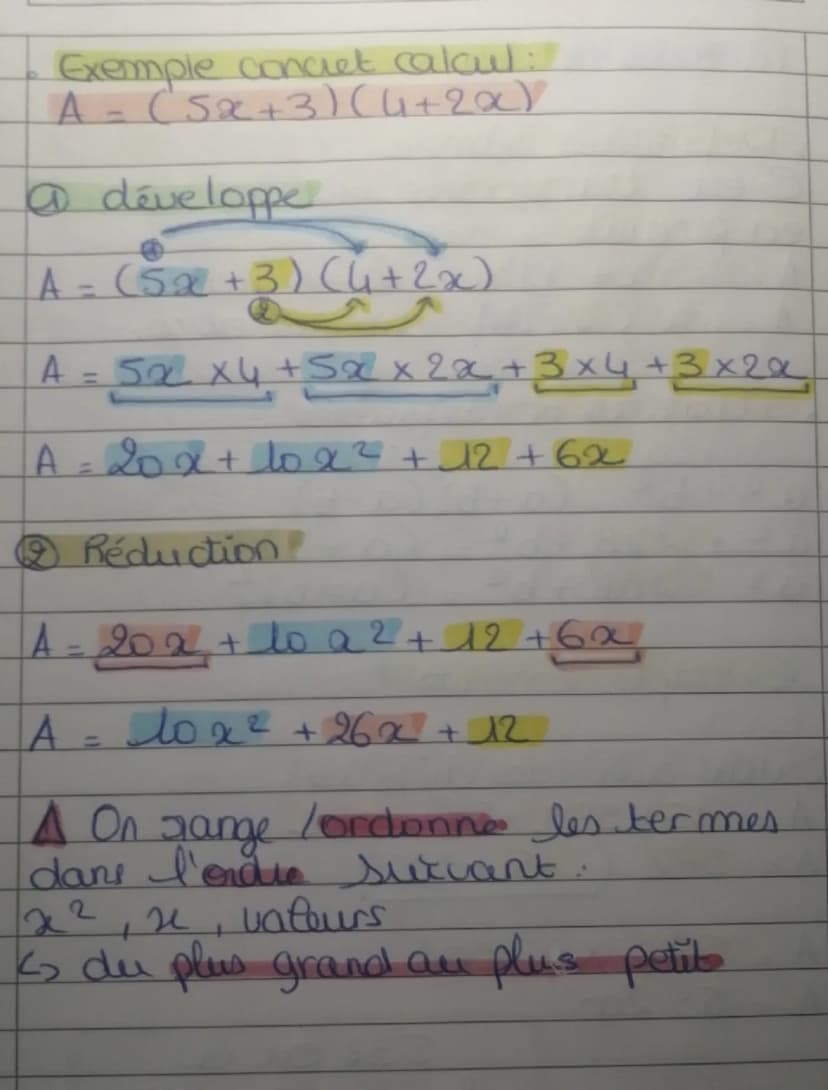 . Exemple concret calcul :
A = (5x+3)(4+2x)
① développe
①
A = (5x + 3) (4+2x)
②
A = 5x ×4 + 5x × 2x + 3 ×4 + 3 ×2x
A = 20x + 10x² + 12 + 6x
② Réduction
A = 20x + 10x² + 12 + 6x
A = 10x² + 26x + 12
⚠ On range / ordonne les termes
dans l'ordre suivant :
x², x, valeurs
↳ du plus grand au plus petit